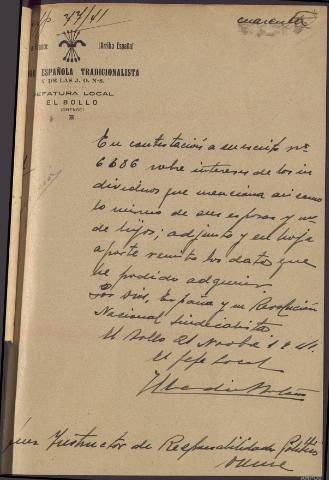 77/41
cuarenta
¡Arriba España!
ESPAÑOLA TRADICIONALISTA
Y DE LAS J. O. N-S.
JEFATURA LOCAL
EL BOLLO
(ORENSE)
En contestación a su escrito nº
6686 sobre intereses de los in
dividuos que menciona asi como
lo mismo de sus esposas y nº
de hijos; adjunto y en hoja
aparte remito los datos que
he podido adquirir.
Por Dios, España y su Revolución
Nacional Sindicalista
El Bollo 21 Novbre 1941.
El Jefe Local
Instructor de Responsabilidades Políticas
Orense